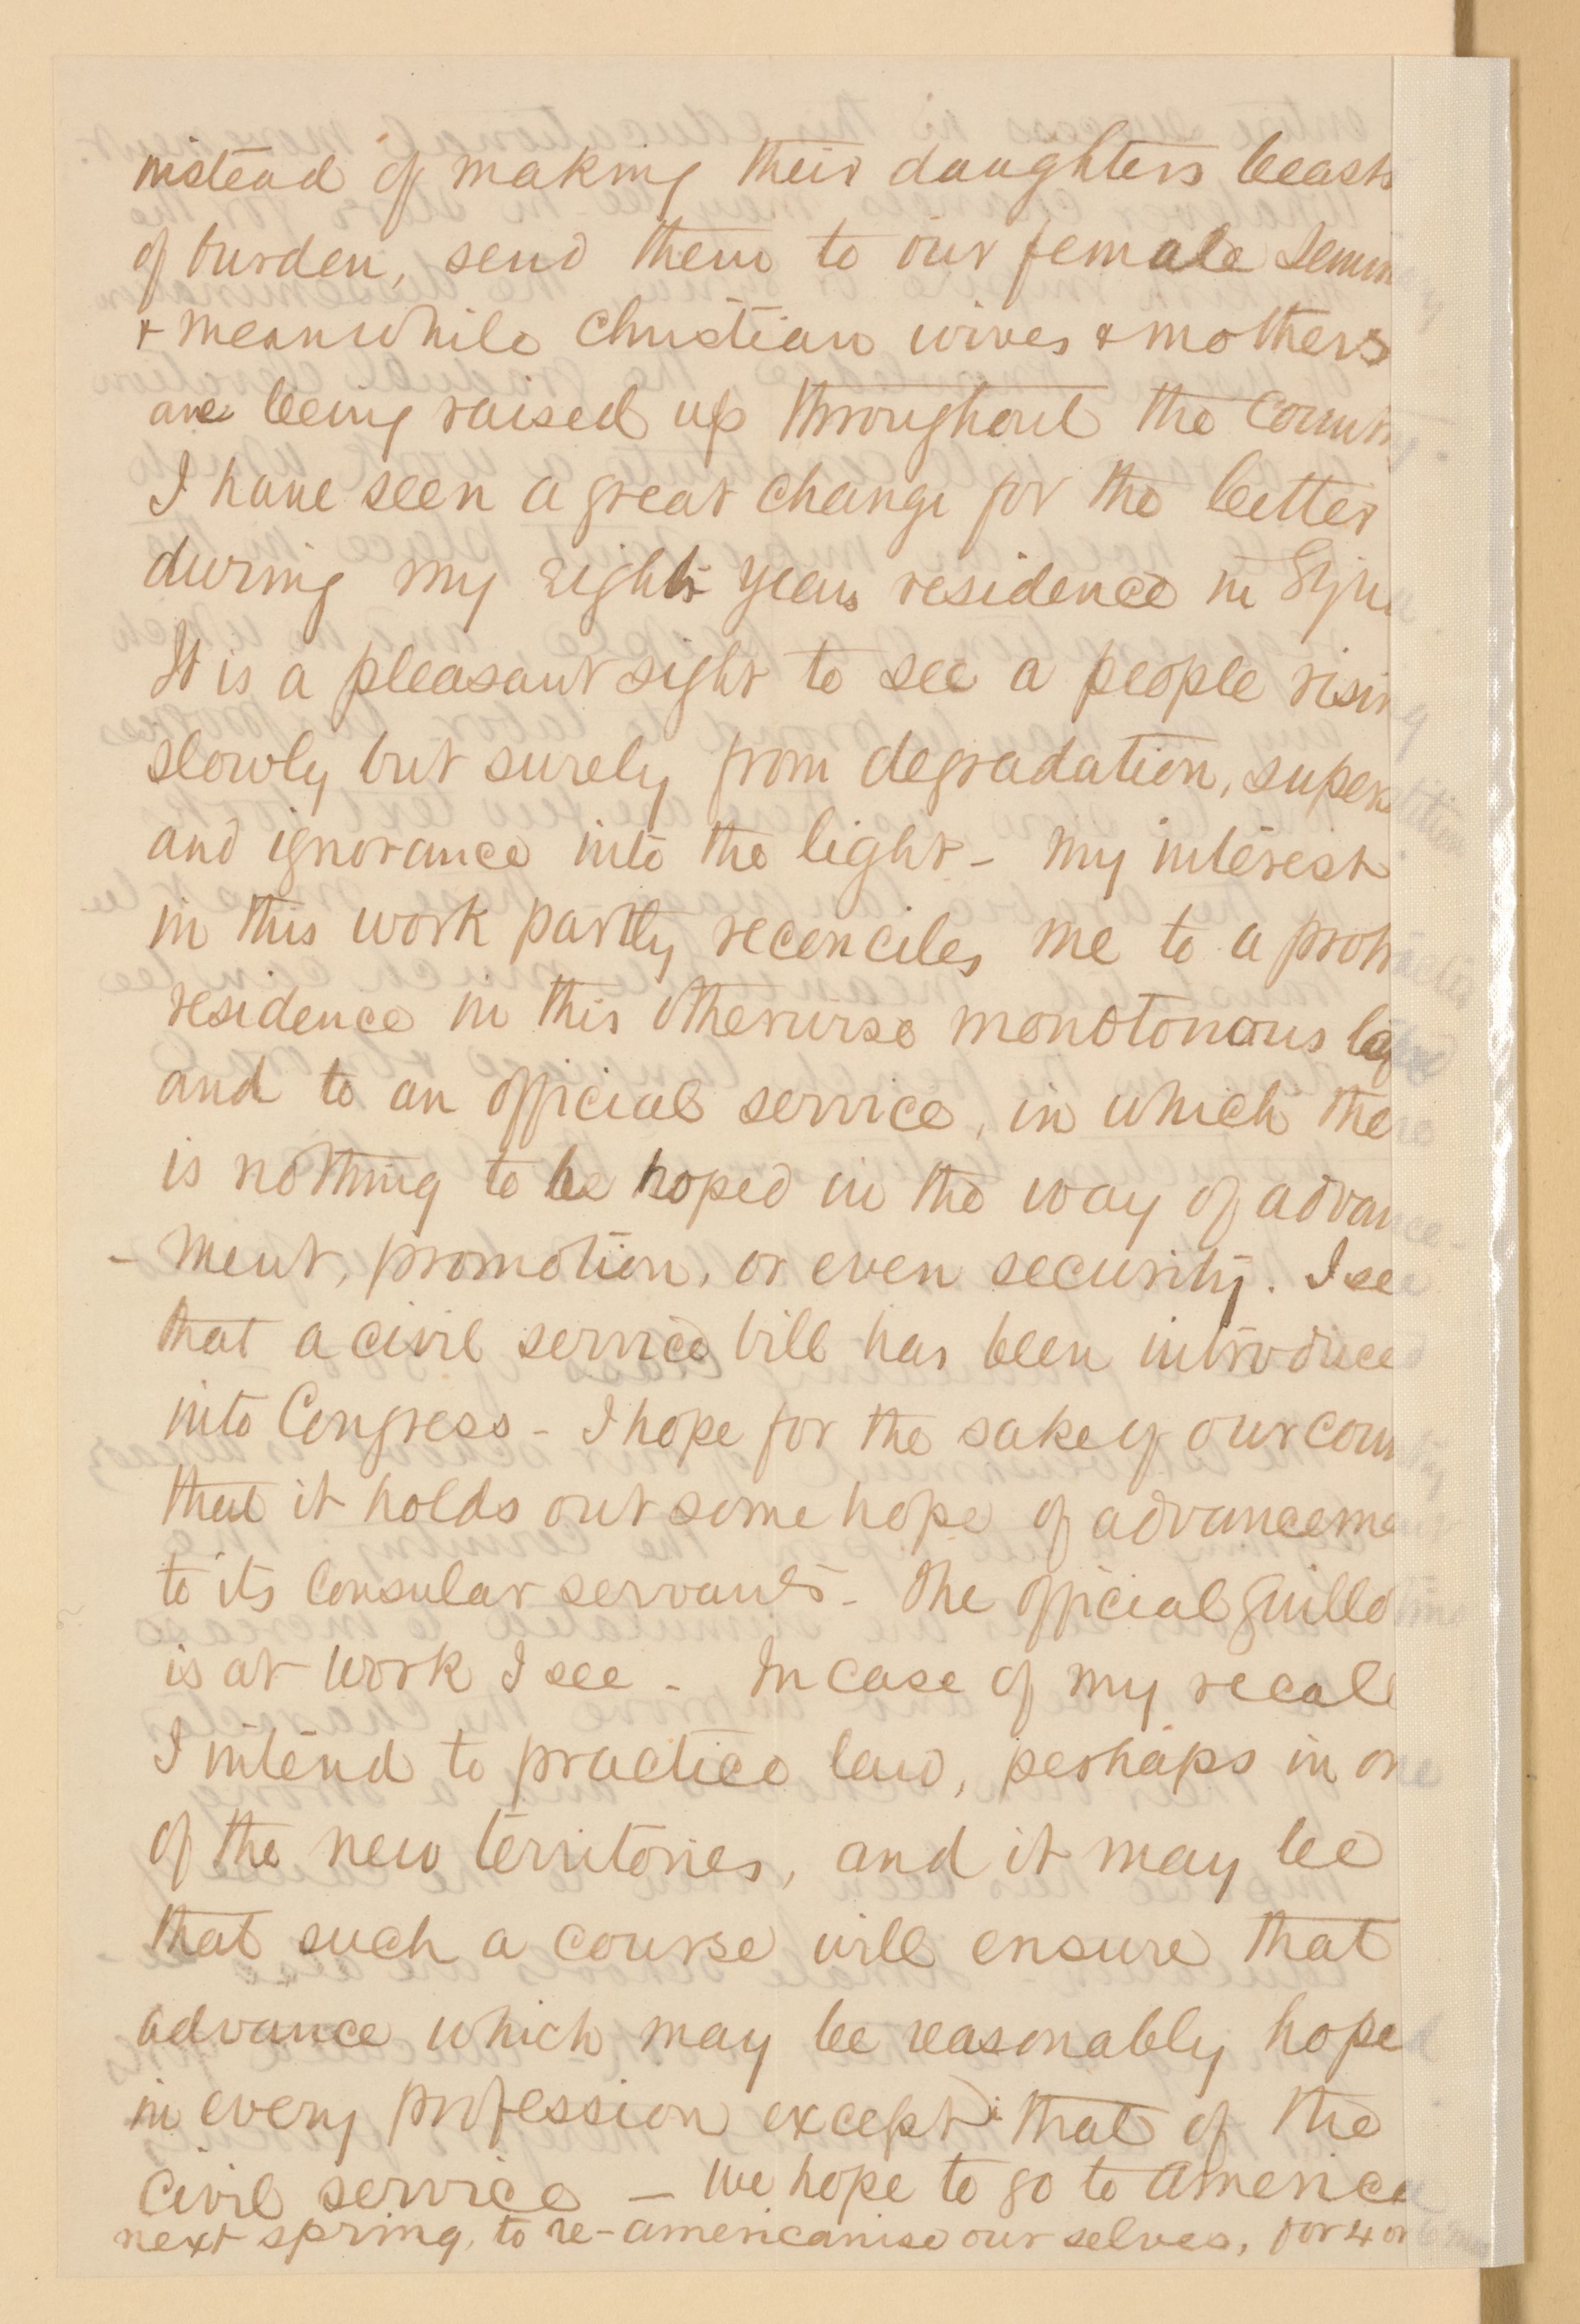 instead of making their daughters beasts
of burden, send them to our female Semin
& meanwhile Christian wives & mothers
are being raised up throughout the Country.
I have seen a great change for the better
during my eight years residence in Syria.
It is a pleasant sight to see a people rising
slowly but surely from degradation, superstition
and ignorance into the light - My interest
in this work partly reconciles me to a protracted
residence in this otherwise monotonous land
and to an official service, in which there
is nothing to be hoped in the way of advance-
- ment, promotion, or even security. I see
that a civil service bill has been introduced
into Congress - I hope for the sake of our country
that it holds out some hope of advancement
to its Consular servants - The official Guillotine
is at work I see - In case of my recall
I intend to practice law, perhaps in one
of the new territories, and it may be
that such a course will ensure that
advance which may be reasonably hoped
in every profession except that of the
Civil service - We hope to go to America
next spring, to re-americanise ourselves, for 4 or 6 mo